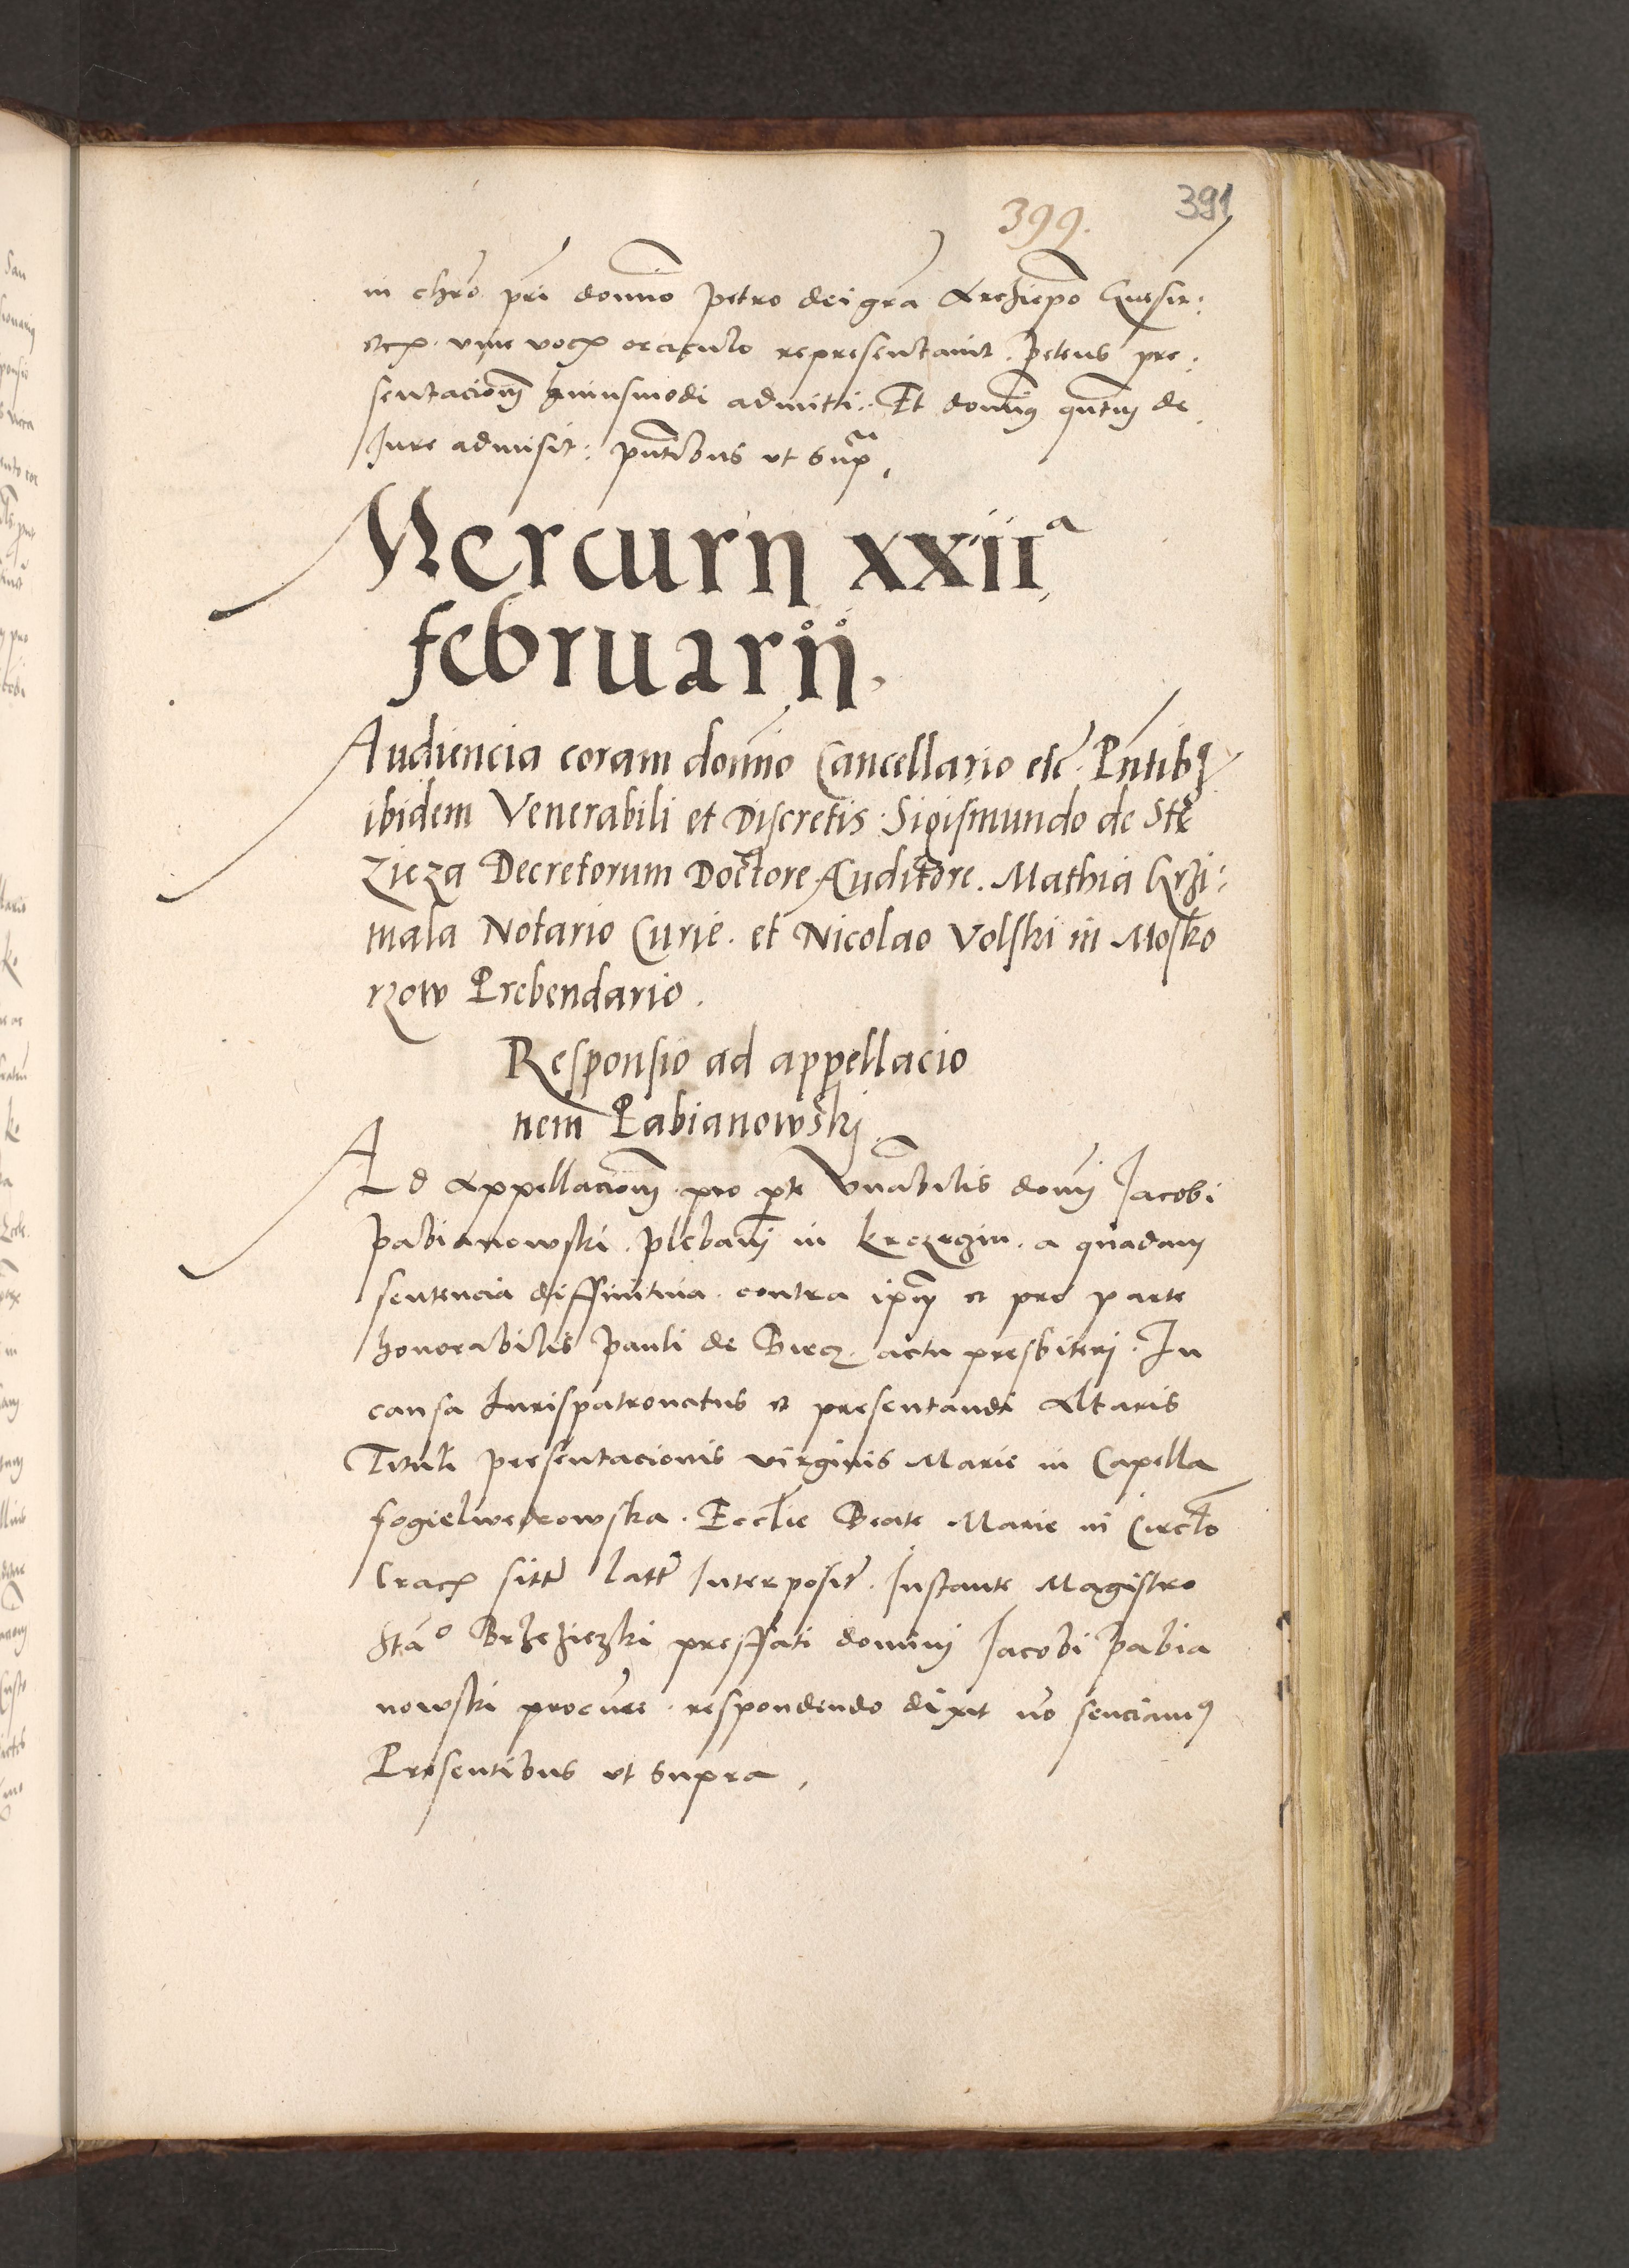 399. 391
in chr̃o pr̃i domĩo Petro dei gr̃a Archiep̃o Gnesñ:
etc. vive vocis oraculo representavit. Petens pre:
sentacion̄ huiusmodi admitti: Et domin9 quantū de
Iure admisit: pñtibus ut supra
Mercurij xxiiᵃ
februarij.
Audiencia coram domĩo Cancellario etc̃. Pñtib9
ibidem Venerabili et Discretis Sigismundo de Stę
zicza Decretorum Doctore Auditore. Mathia Krzi:
mala Notario Curie. et Nicolao Volski in Mosko
rzow Prebendario.
Responsio ad appellacio
nem Pabianowskj
Ad Appellacion̄ pro pte Vñabilis domĩ Iacobi
Pabianowski. plebani in krczęczin. a quadam
sentencia diffinitiva. contra ip̃m et pro parte
honorabilis Pauli de Biecz. actu presbiteri. In
causa Iurispatronatus et presentandi Altaris
Tituli presentacionis virginis Marie in Capella
fogielwedrowska. Eccl̃ie Beate Marie in Circl̃o
Crac̃ sitt̃ latt̃ Interposit̃. Instante Magistro
Staᵒ Brzezieczki preffati dominj Iacobi Pabia
nowski procure. respondendo dixit nõ senciam9
Presentibus ut supra,